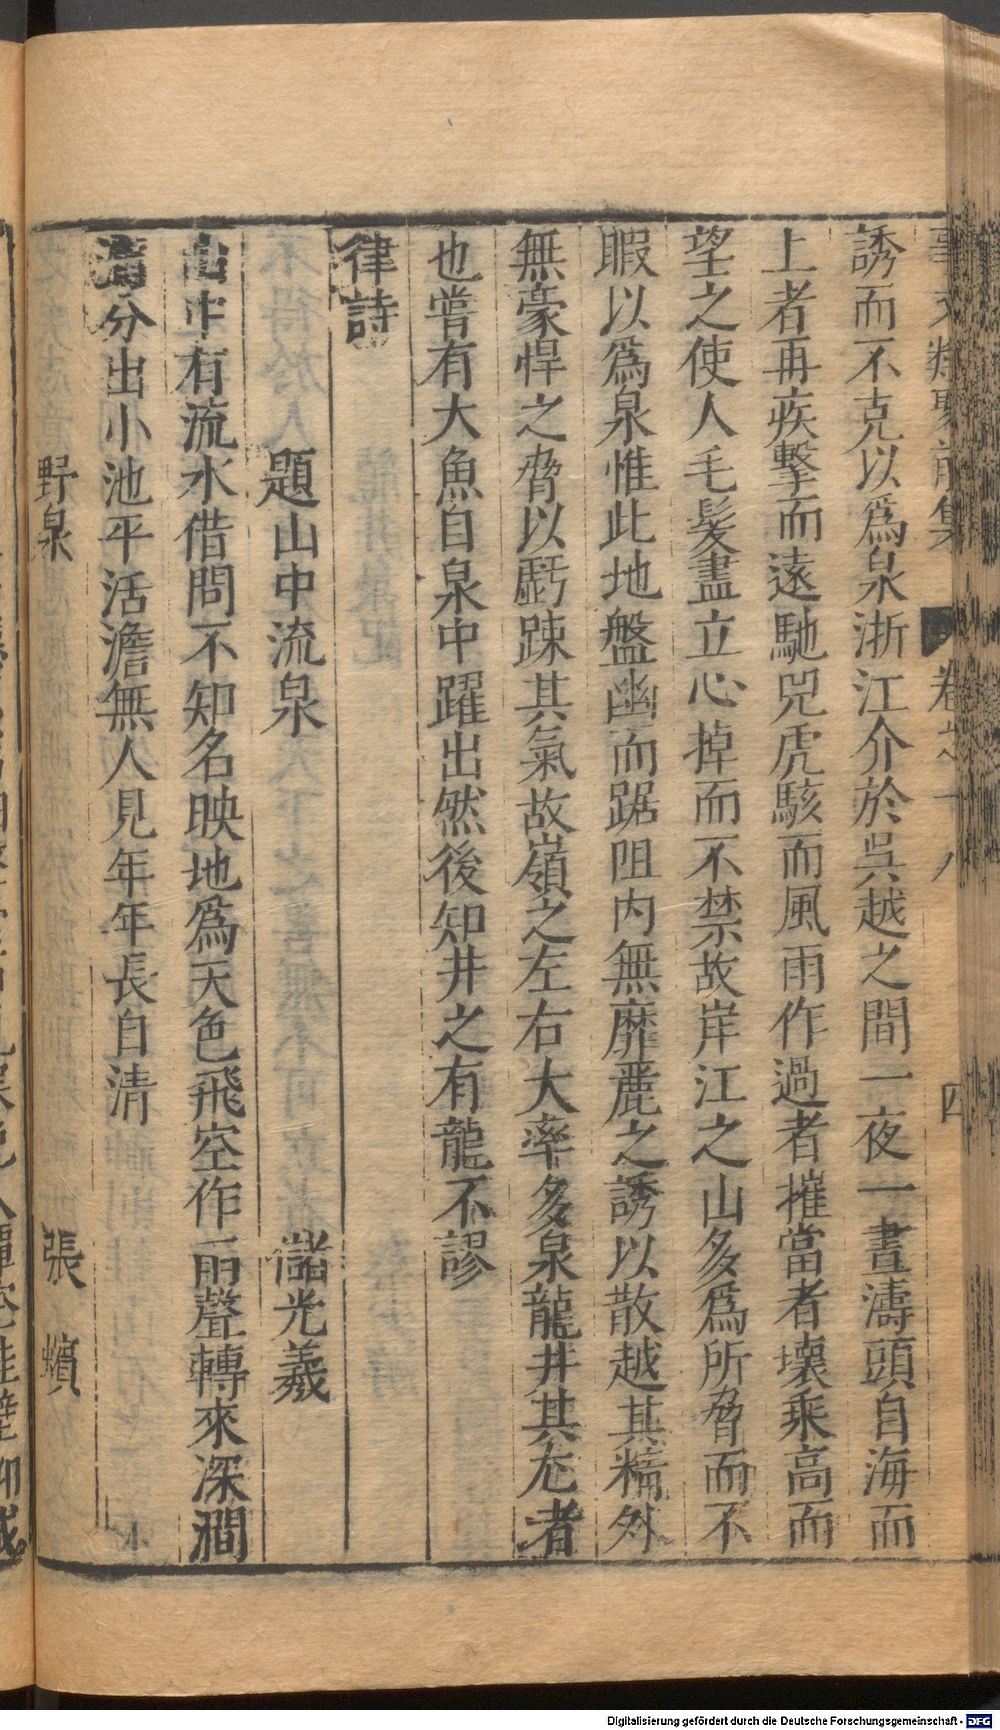 事文類聚前集 卷之十八 四
誘而不克以爲泉浙江介於吳越之間一夜一晝濤頭自海而
上者再疾擊而遠馳兕虎駭而風雨作過者摧當者壞乘高而
望之使人毛髮盡立心掉而不禁故岸江之山多爲所脅而不
暇以爲泉惟此地盤幽而踞阻內無靡麗之誘以散越其精外
無豪悍之脅以虧踈其氣故嶺之左右大率多泉龍井其尤者
也嘗有大魚自泉中躍出然後知井之有龍不謬
律詩
題山中流泉 儲光羲
山中有流水借問不知名映地爲天色飛空作雨聲轉來深澗
滿分出小池平活澹無人見年年長自清
野泉 張蠙
Digitalisierung gefördert durch die Deutsche Forschungsgemeinschaft - DFG